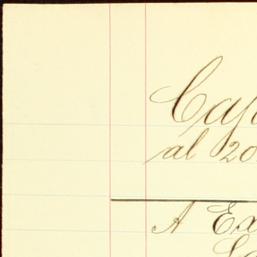 Cap
al 20
A Ex